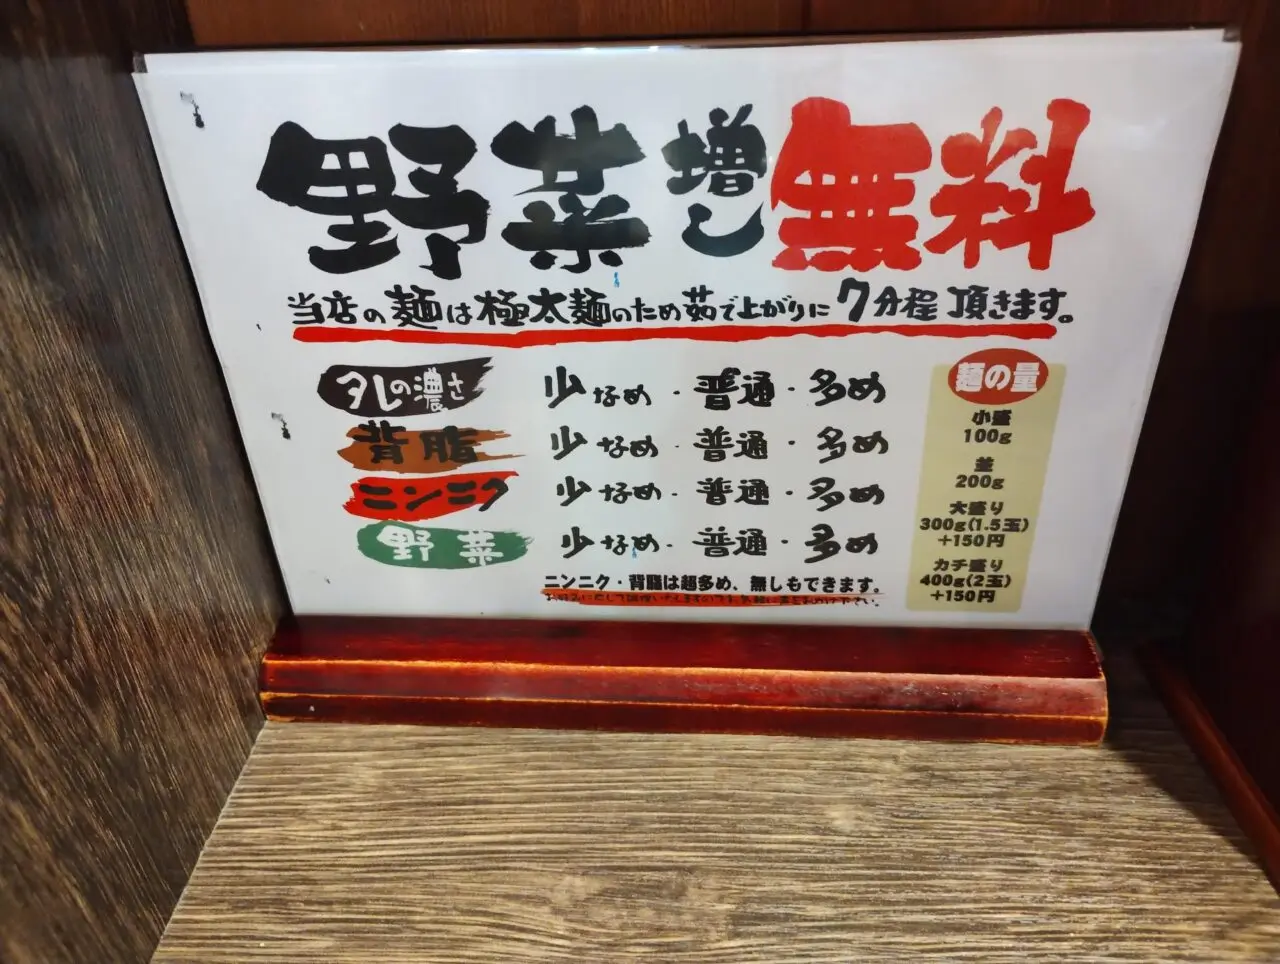 野菜増し無料
当店の麺は極太麺のため茹で上がりに7分程頂きます。
タレの濃さ 少なめ・普通・多め
背脂 少なめ・普通・多め
ニンニク 少なめ・普通・多め
野菜 少なめ・普通・多め
ニンニク・背脂は超多め、無しもできます。
お好みに応じて調理いたしますので、お気軽に声をおかけ下さい。
麺の量
小盛
100g
並
200g
大盛り
300g(1.5玉)
+150円
カチ盛り
400g(2玉)
+150円